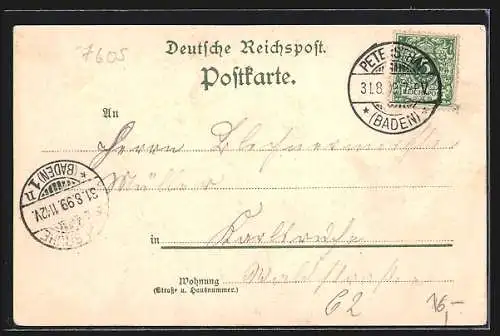 7605
Deutsche Reichspost.
Postkarte.
PETE STHAL
31.8. 7-8V.
* (BADEN) *
An
Herrn Blechnermeister
Müller
31.8.99. 11-12V.
* (BADEN) 1
in Karlsruhe
Wohnung Waldstraße
(Straße u. Hausnummer.)
62
16,-